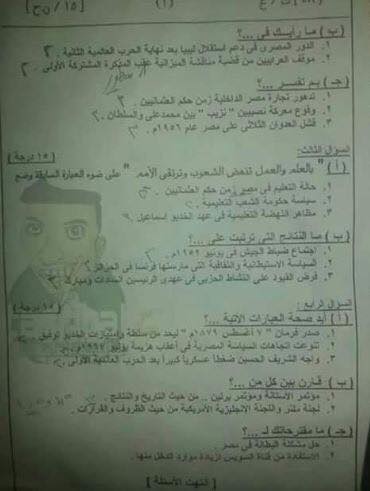 (ب) ما رأيك في ...؟
١. الدور المصرى فى دعم استقلال ليبيا بعد نهاية الحرب العالمية الثانية .
٢. موقف العرابيين من قضية مناقشة الميزانية عقب المذكرة المشتركة الأولى .
(جـ) بم تفسر ...؟
١. تدهور تجارة مصر الداخلية زمن حكم العثمانيين .
٢. وقوع معركة نصيبين " نزيب " بين محمد على والسلطان .
٣. فشل العدوان الثلاثى على مصر عام ١٩٥٦م .
السؤال الثالث: (١٥ درجة)
(أ) " بالعلم والعمل تنهض الشعوب وترتقى الأمم " على ضوء العبارة السابقة وضح
١. حالة التعليم فى مصر زمن حكم العثمانيين .
٢. سياسة حكومة الشعب التعليمية .
٣. مظاهر النهضة التعليمية فى عهد الخديو اسماعيل .
(ب) ما النتائج التى ترتبت على ...؟
١. اجتماع ضباط الجيش فى يونيو
٢. السياسة الاستيطانية والثقافية التى مارستها فرنسا فى الجزائر .
٣. فرض القيود على النشاط الحزبى فى عهدى الرئيسين السادات ومبارك .
السؤال الرابع: (١٥ درجة)
(أ) أيد صحة العبارات الآتية ...؟
١. صدر فرمان " ٧ أغسطس ١٨٧٩م " ليحد من سلطة وامتيازات الخديو توفيق .
٢. تنوعت اتجاهات السياسة المصرية فى أعقاب هزيمة يونيو ١٩٦٧م .
٣. واجه الشريف الحسين ضغطاً عسكرياً كبيراً بعد الحرب العالمية الأولى .
(ب) قارن بين كل من ...؟
١. مؤتمر الآستانة ومؤتمر برلين .. من حيث التاريخ والنتائج .
٢. لجنة ملنر واللجنة الإنجليزية الأمريكية من حيث الظروف والقرارات .
(جـ) ما مقترحاتك لـ ...؟
١. حل مشكلة البطالة فى مصر .
٢. الاستفادة من قناة السويس لزيادة موارد الدخل منها .
[ انتهت الأسئلة ]